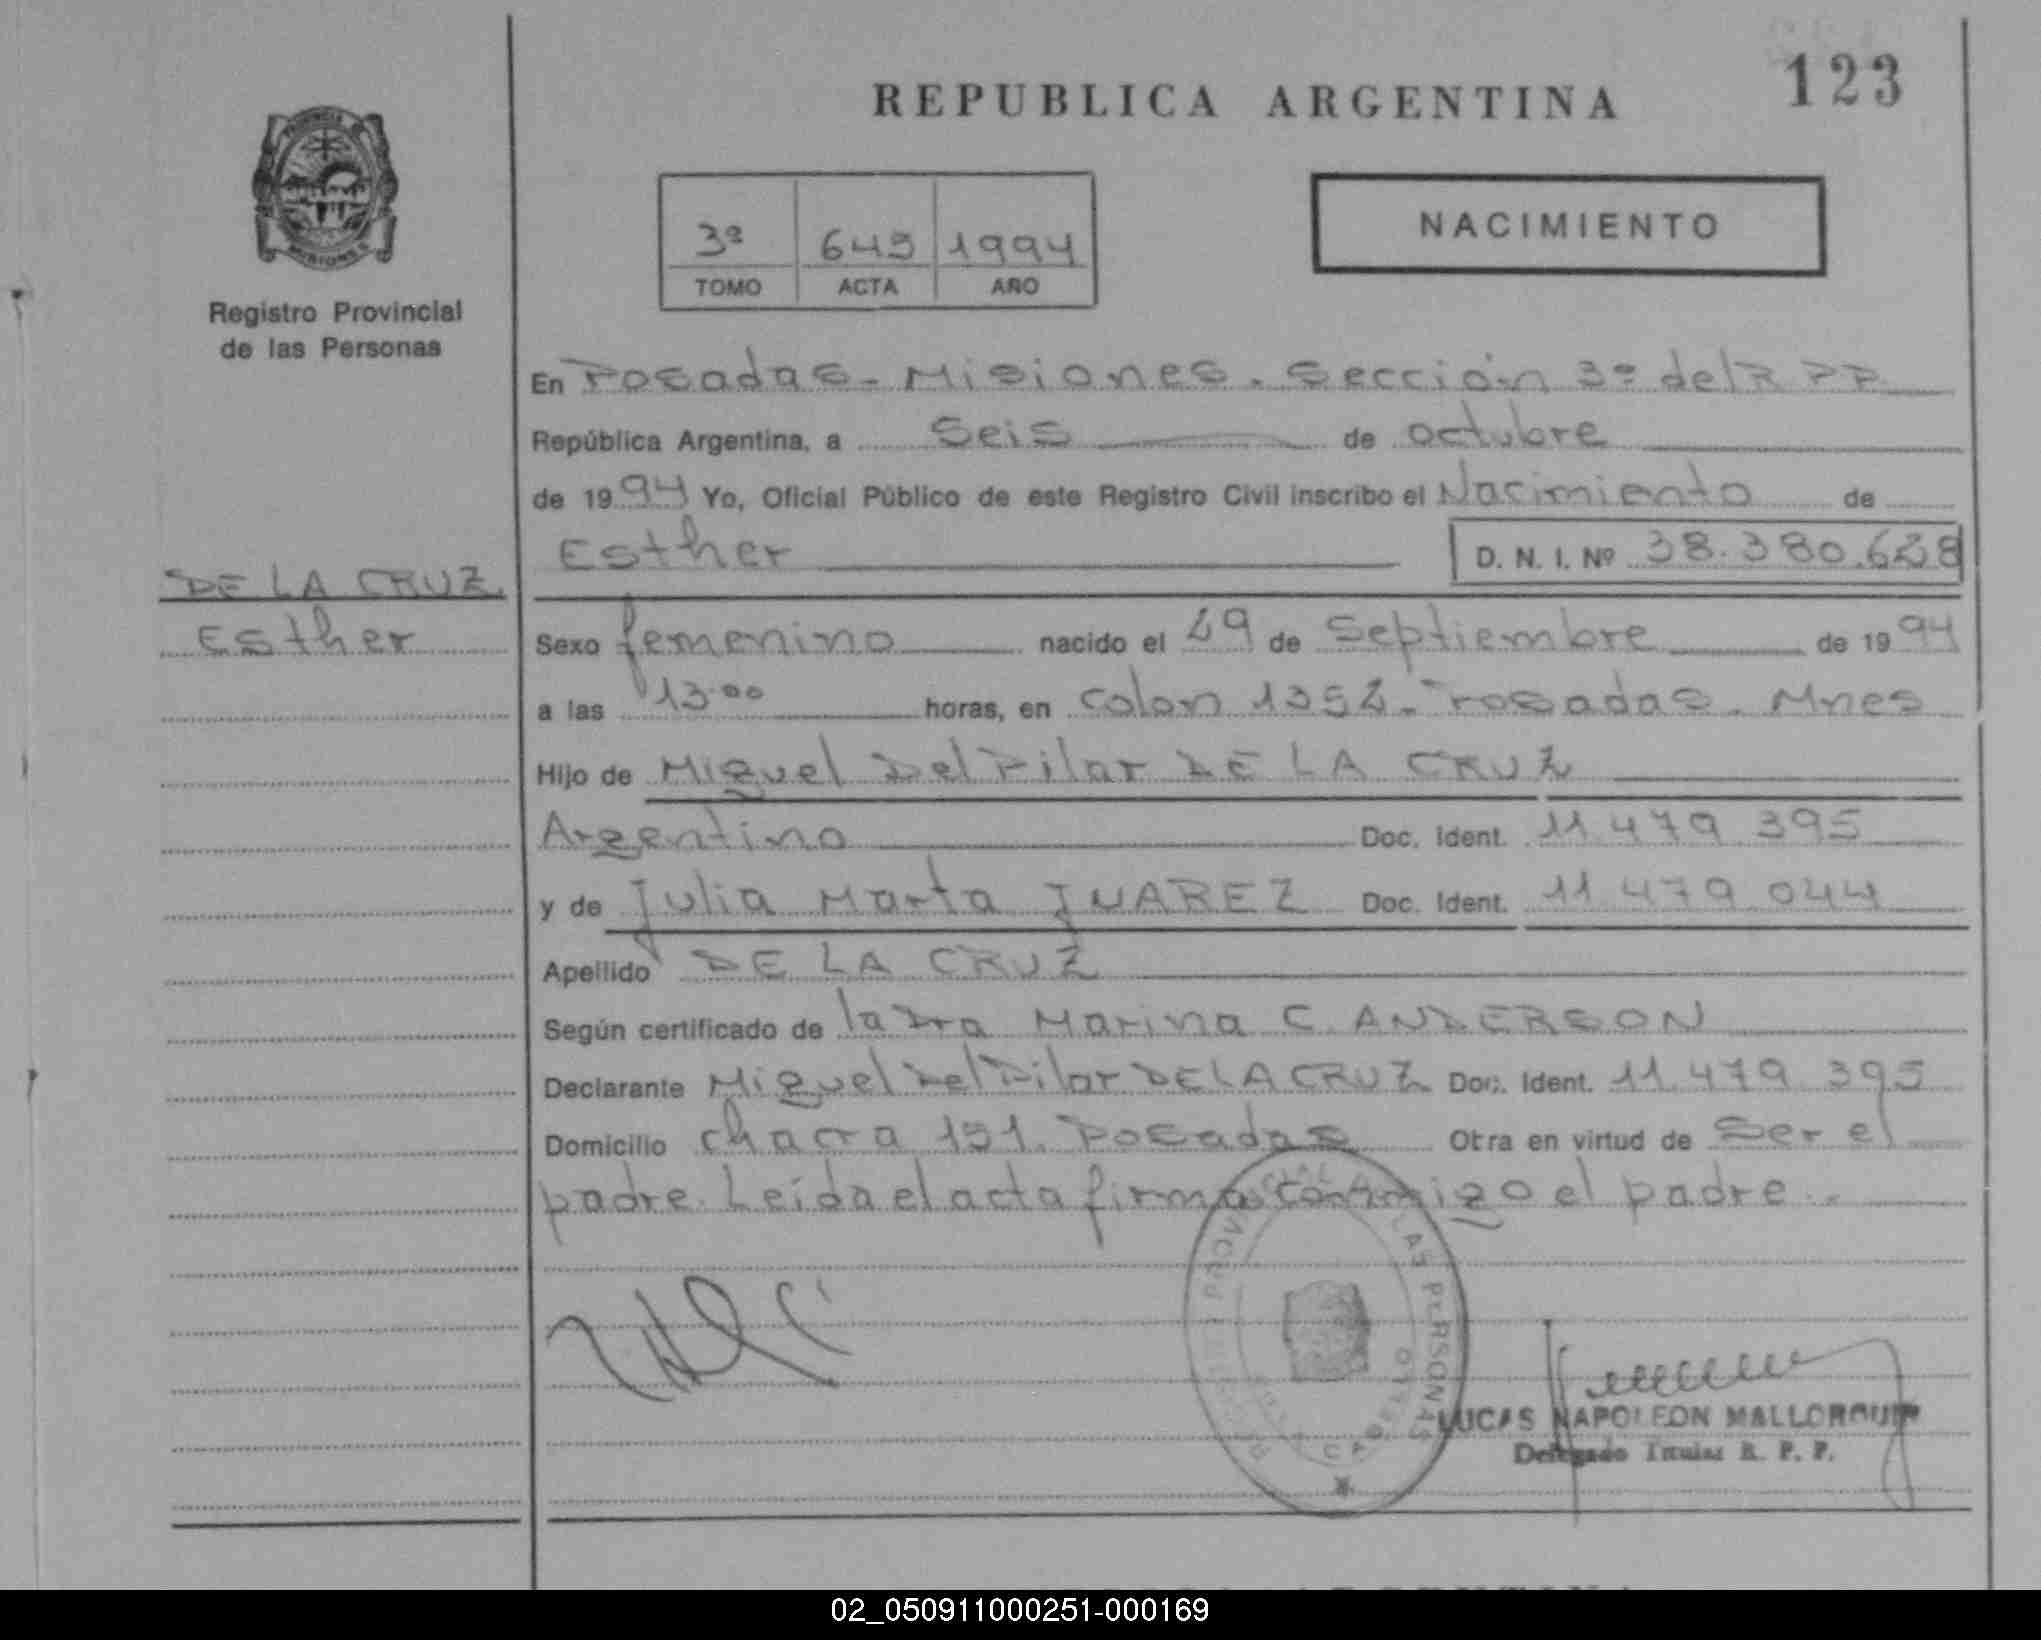 REPUBLICA ARGENTINA
123
PROVINCIA DE
MISIONES
Registro Provincial
de las Personas
3ª 645 1994
TOMO ACTA AÑO
NACIMIENTO
En Posadas - Misiones. Sección 3ª del R P P
República Argentina, a Seis de octubre
de 1994 Yo, Oficial Público de este Registro Civil inscribo el Nacimiento de
Esther
D. N. I. Nº 38.380.628
DE LA CRUZ
Esther
Sexo femenino nacido el 29 de Septiembre de 1994
a las 13.00 horas, en Colon 1352. Posadas. Mnes
Hijo de Miguel Del Pilar DE LA CRUZ
Argentino Doc. Ident. 11 479 395
y de Julia Marta JUAREZ Doc. Ident. 11 479 044
Apellido DE LA CRUZ
Según certificado de la Dra Marina C. ANDERSON
Declarante Miguel Del Pilar DE LA CRUZ Doc. Ident. 11 479 395
Domicilio chacra 151. Posadas Otra en virtud de Ser el
padre. Leída el acta firma conmigo el padre.
PROVINCIAL LAS PERSONAS
LUCAS NAPOLEON MALLORQUIN
Delegado Titular R. P. P.
02_050911000251-000169